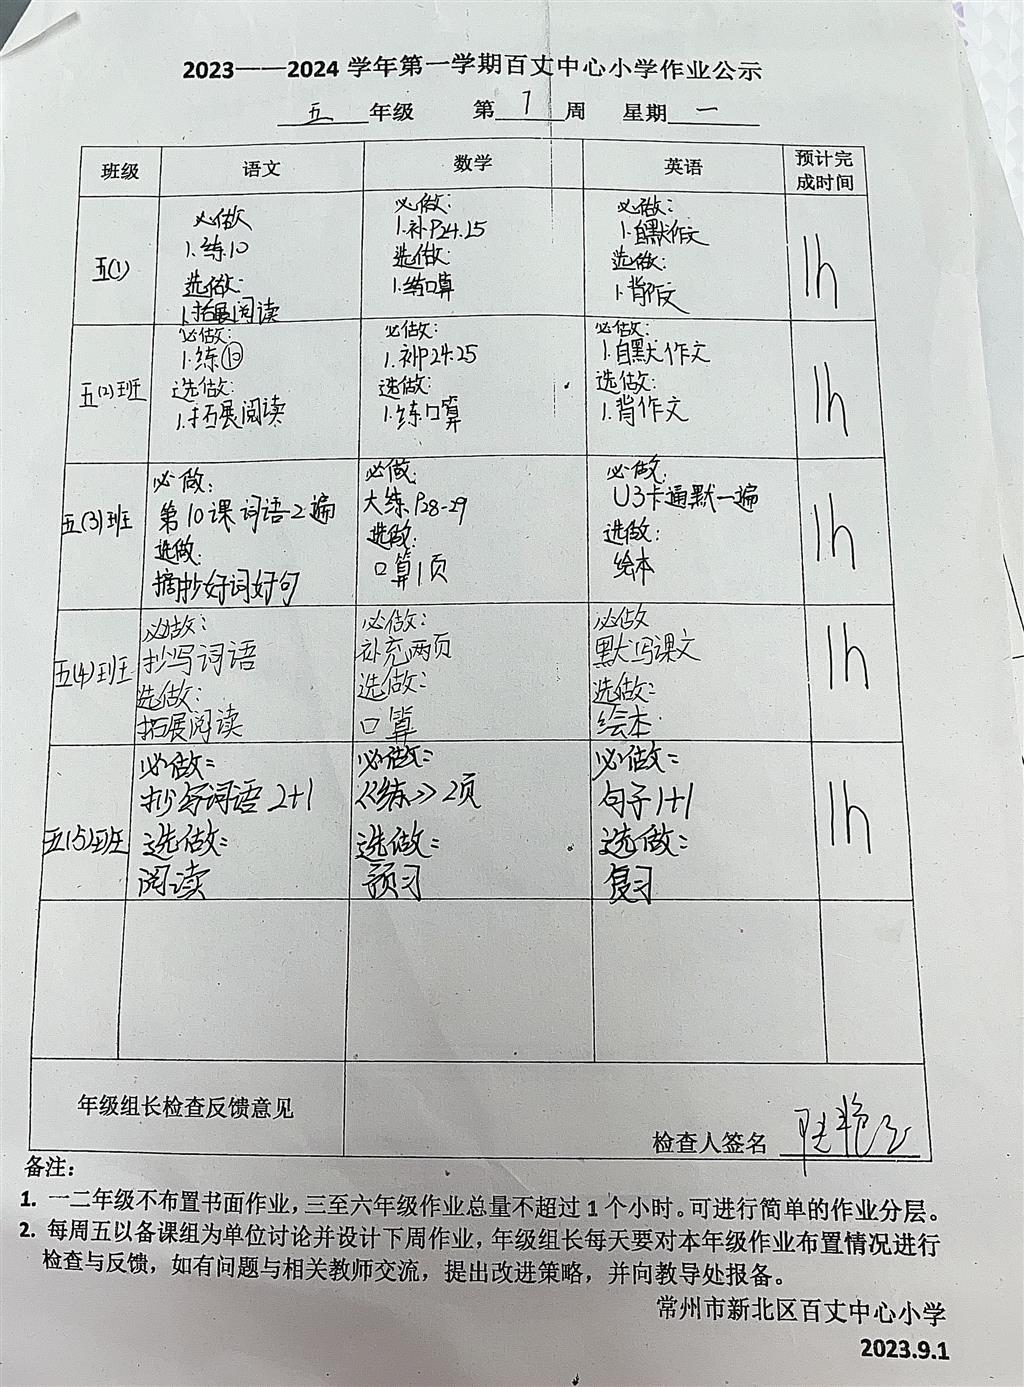 2023——2024 学年第一学期百丈中心小学作业公示
五 年级 第 7 周 星期 一
班级 语文 数学 英语 预计完成时间
五(1)
必做
1.练10
选做:
1.拓展阅读
必做:
1.补P24.25
选做:
1.练口算
必做:
1.自默作文
选做:
1.背作文
1h
五(2)班
必做:
1.练⑩
选做:
1.拓展阅读
必做:
1.补P24.25
选做:
1.练口算
必做:
1.自默作文
选做:
1.背作文
1h
五(3)班
必做:
第10课词语2遍
选做:
摘抄好词好句
必做:
大练P28-29
选做:
口算1页
必做:
U3卡通默一遍
选做:
绘本
1h
五(4)班
必做:
抄写词语
选做:
拓展阅读
必做:
补充两页
选做:
口算
必做
默写课文
选做:
绘本
1h
五(5)班
必做:
抄写词语2+1
选做:
阅读
必做:
《练》2页
选做:
预习
必做:
句子1+1
选做:
复习
1h
年级组长检查反馈意见
检查人签名
备注:
1. 一二年级不布置书面作业，三至六年级作业总量不超过 1 个小时。可进行简单的作业分层。
2. 每周五以备课组为单位讨论并设计下周作业，年级组长每天要对本年级作业布置情况进行
检查与反馈，如有问题与相关教师交流，提出改进策略，并向教导处报备。
常州市新北区百丈中心小学
2023.9.1